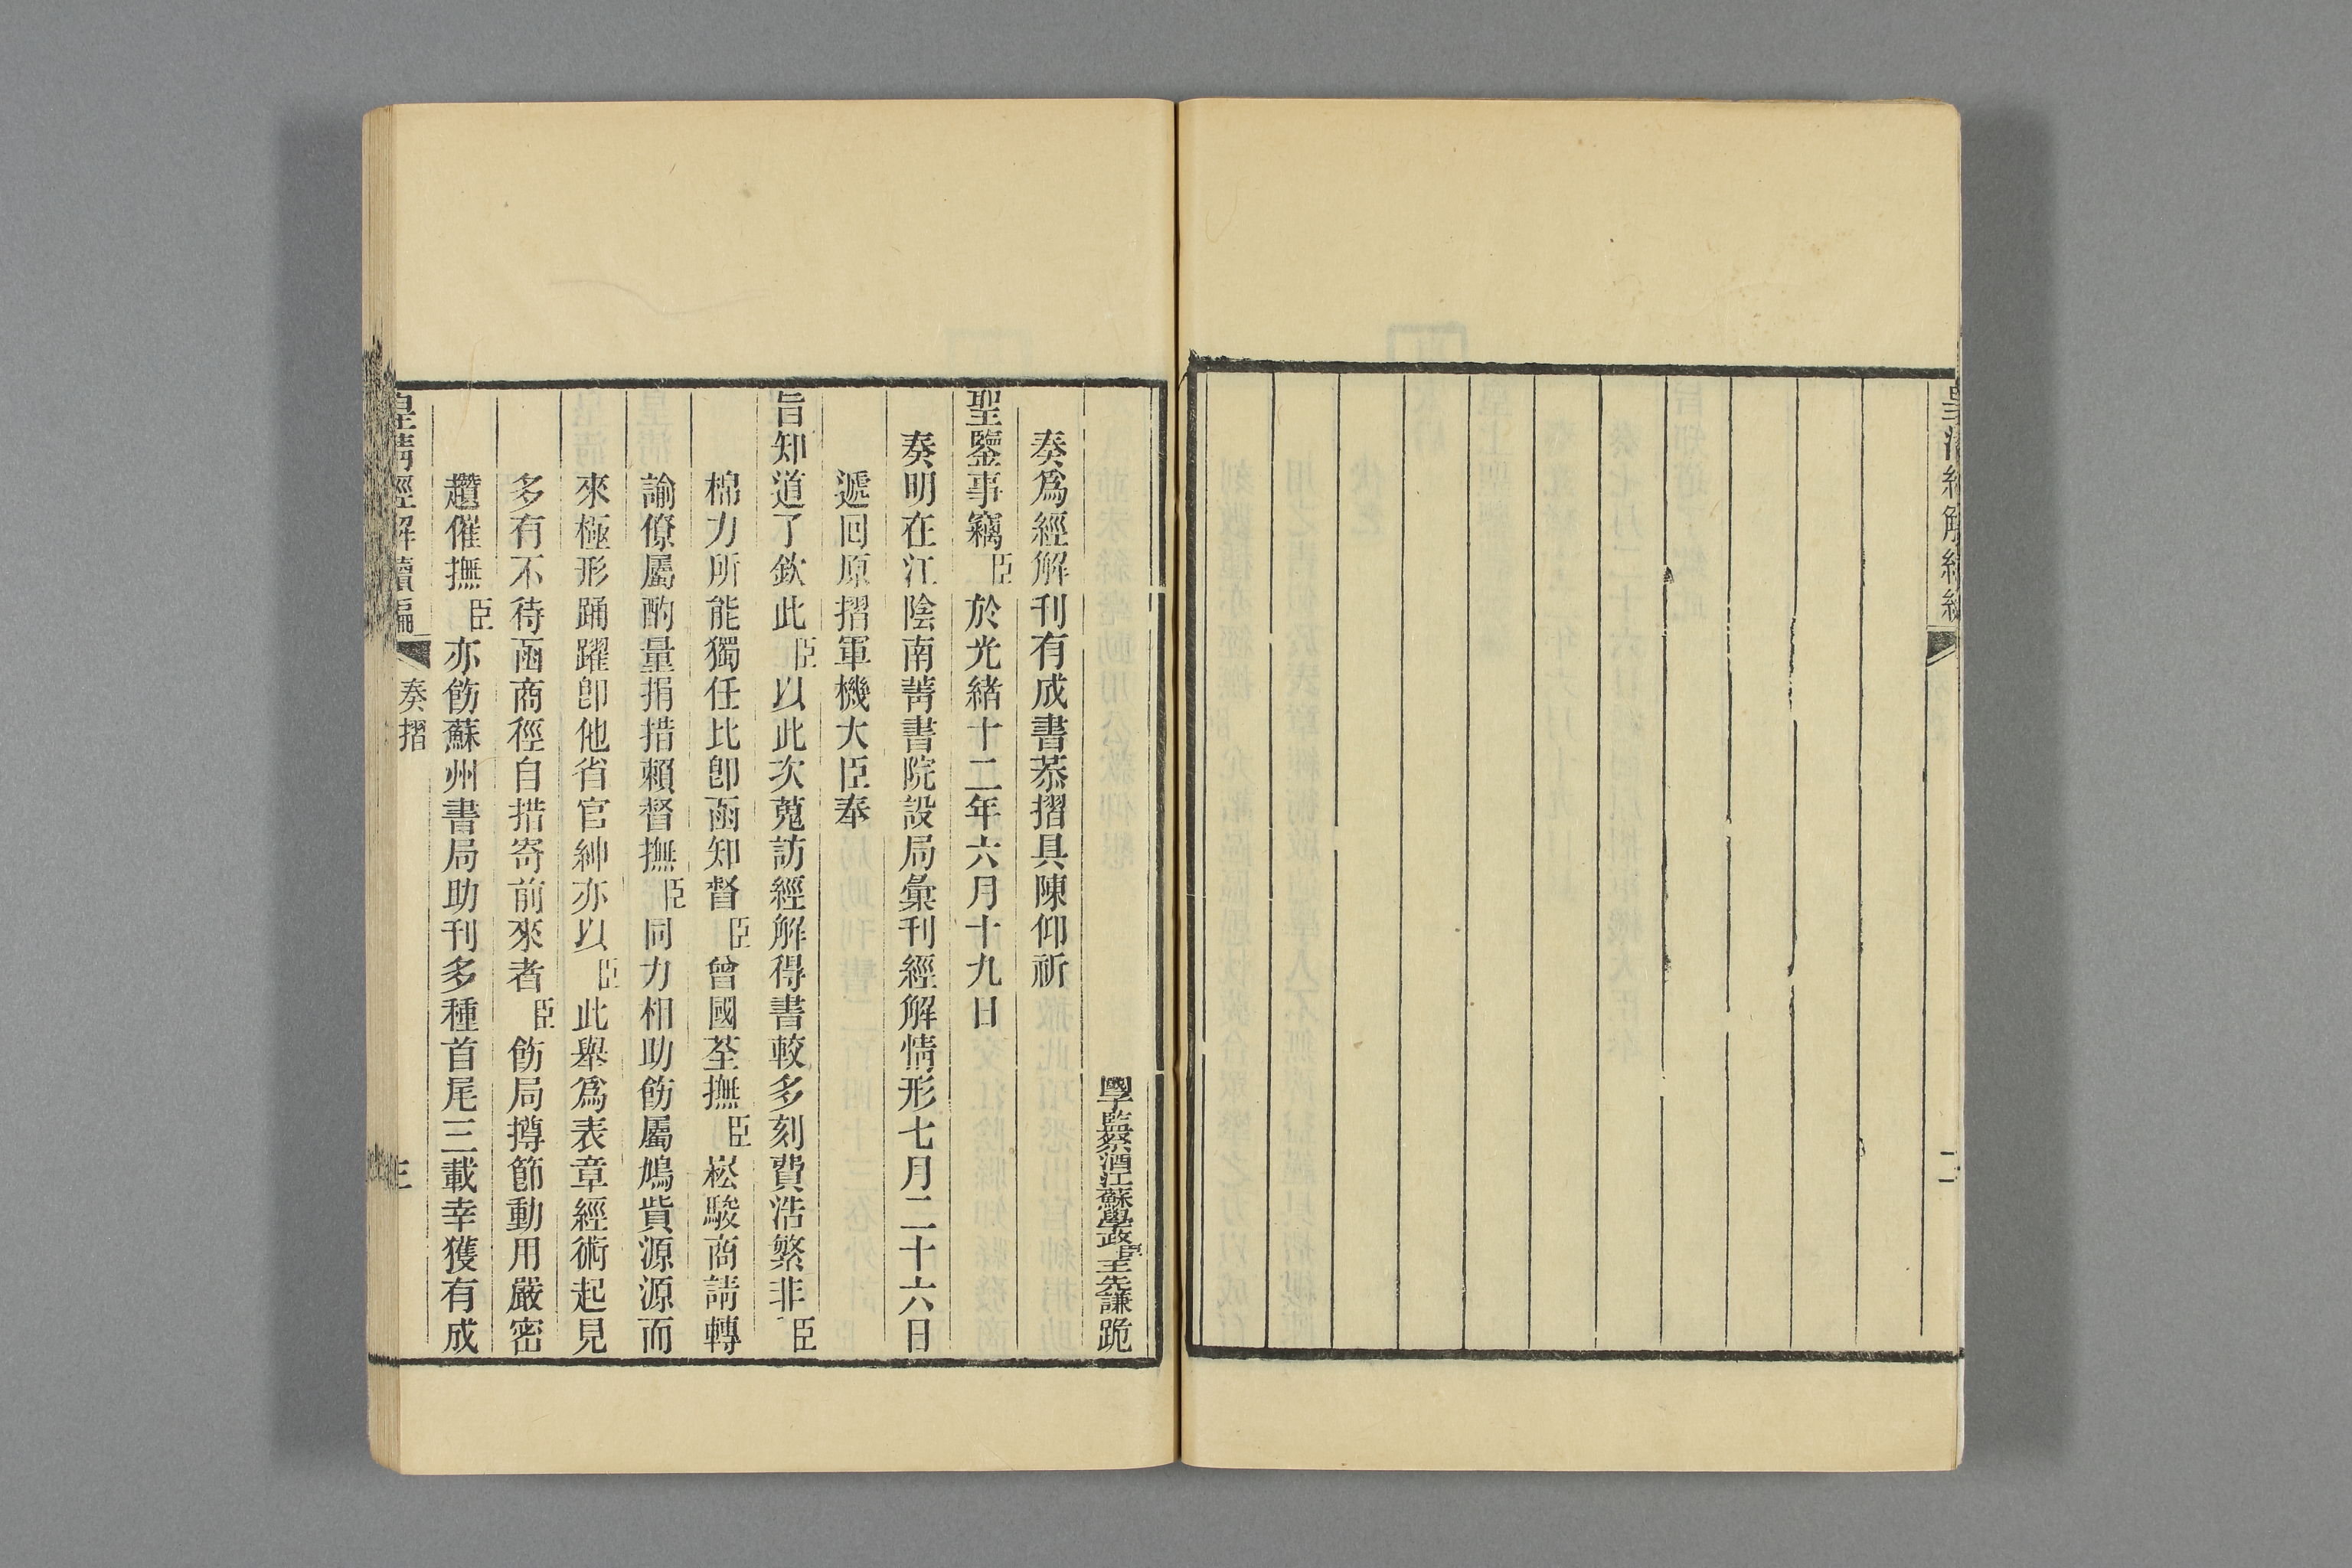 皇清經解續編
二
國子監祭酒江蘇學政臣王先謙跪
奏爲經解刊有成書恭摺具陳仰祈
聖鑒事竊臣於光緒十二年六月十九日
奏明在江陰南菁書院設局彙刊經解情形七月二十六日
遞回原摺軍機大臣奉
旨知道了欽此臣以此次蒐訪經解得書較多刻費浩繁非臣
棉力所能獨任比卽函知督臣曾國荃撫臣崧駿商請轉
諭僚屬酌量捐措賴督撫臣同力相助飭屬鳩貲源源而
來極形踊躍卽他省官紳亦以臣此舉爲表章經術起見
多有不待函商徑自措寄前來者臣飭局撙節動用嚴密
趲催撫臣亦飭蘇州書局助刊多種首尾三載幸獲有成
皇淸經解續編 奏摺 三